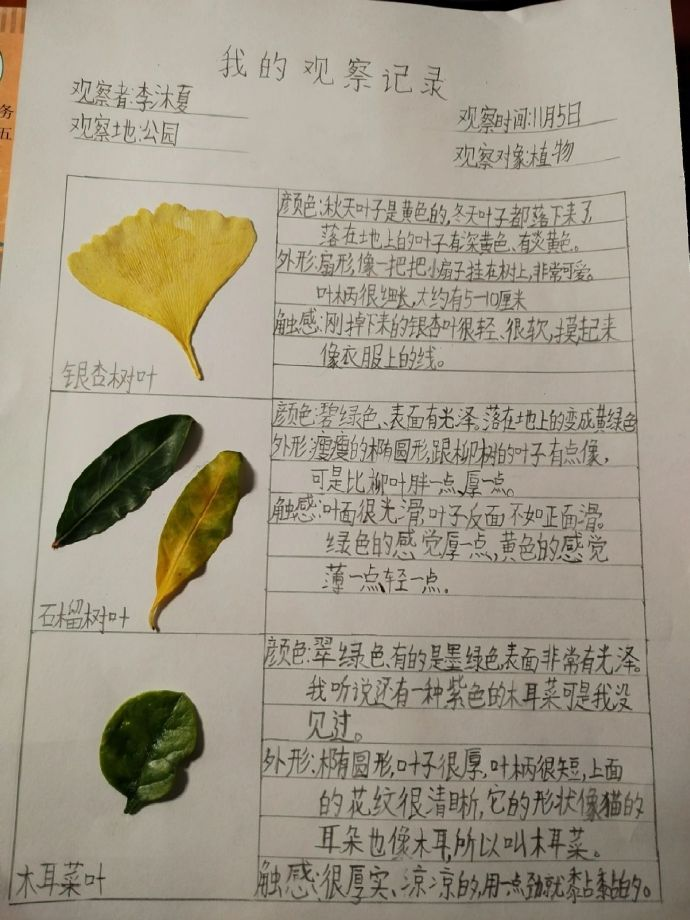 我的观察记录
观察者:李沐夏
观察时间:11月5日
观察地:公园
观察对象:植物
务
五
颜色:秋天叶子是黄色的,冬天叶子都落下来了,
落在地上的叶子有深黄色、有炎黄色。
外形:扇形,像一把把小扇子挂在树上,非常可爱。
叶柄很细长,大约有5-10厘米
触感:刚掉下来的银杏叶很轻、很软,摸起来
像衣服上的线。
银杏树叶
颜色:碧绿色、表面有光泽。落在地上的变成黄绿色
外形:瘦瘦的椭圆形,跟柳树的叶子有点像,
可是比柳叶胖一点、厚一点。
触感:叶面很光滑,叶子反面不如正面滑。
绿色的感觉厚一点,黄色的感觉
薄一点、轻一点。
石榴树叶
颜色:翠绿色、有的是墨绿色,表面非常有光泽。
我听说还有一种紫色的木耳菜可是我没
见过。
外形:椭圆形,叶子很厚,叶柄很短,上面
的花纹很清晰,它的形状像猫的
耳朵也像木耳,所以叫木耳菜。
触感:很厚实、凉凉的,用一点劲就黏黏的。
木耳菜叶